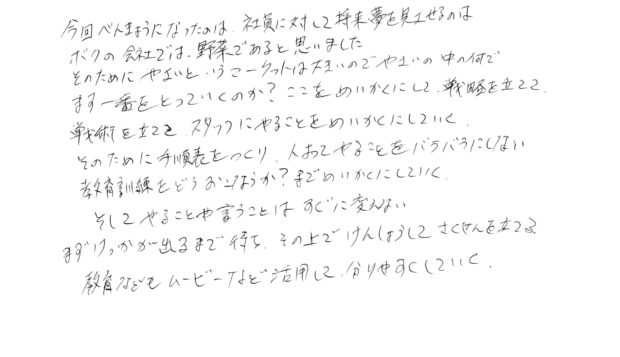 今回べんきょうになったのは、社員に対して将来夢を見させるのは
ボクの会社では、野菜であると思いました
そのために やさいというマーケットは大きいのでやさいの中の何で
まず一番をとっていくのか？ここをめいかくにして、戦略を立てて
戦術を立てて スタッフにやることをめいかくにしていく、
そのために手順表をつくり、人によってやることをバラバラにしない
教育訓練をどうおこなうか？までめいかくにしていく、
そしてやることや言うことはすぐに変えない
まずけっかが出るまで待ち、その上でけんしょうしてさくせんを立てる
教育などもムービーなど活用して、分りやすくしていく、